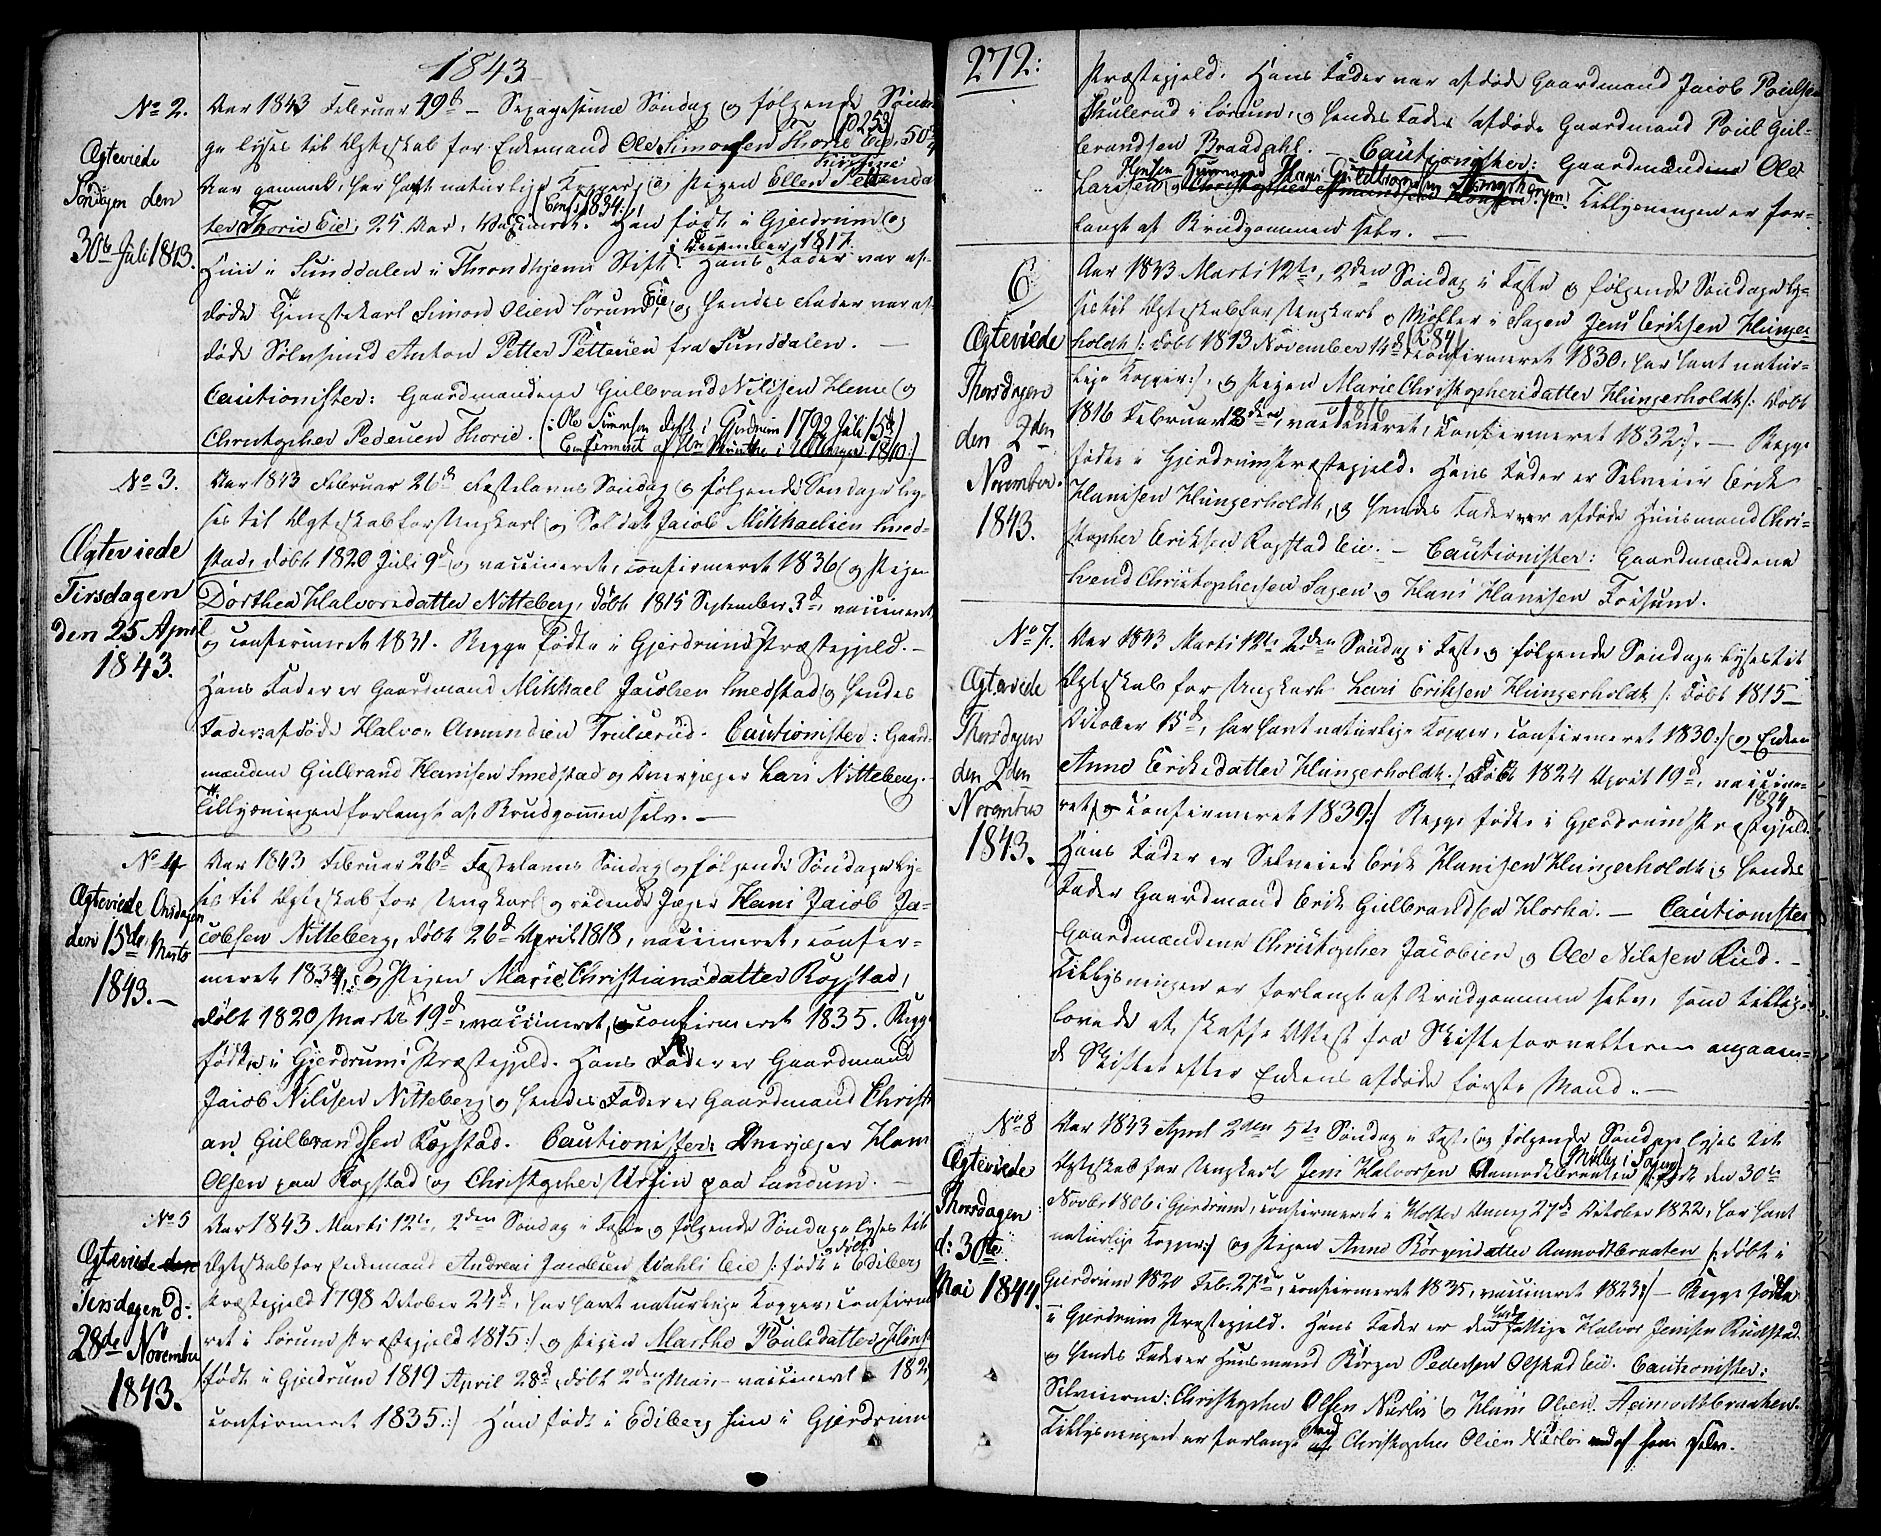 1843
No 2.
Ægteviede
Søndagen den
30te Juli 1843.
Aar 1843 Februar 19de Sexagesima Søndag og følgende Sønda-
ge lyses til Ægteskab for Enkemand Ole Simonsen Thorie Eie, 50
(p 253)
Aar gammel, har havt naturlige Kopper, og Pigen Ellen Pettersda-
ter Thorie Eie, 25 Aar, vaccineret. Han født i Gjerdrum og
(Conf: 1834:)
Hun i Sunddalen i Throndhjems Stift. Hans Fader var af-
i December 1817.
døde Tjenestekarl Simon Olsen Sørum Eie, og hendes Fader var af-
døde Anton Petter Pettersen fra Sunddalen. —
Cautionister: Gaardmændene Gulbrand Nilssen Heme og
Christopher Pedersen Thorie. (: Ole Simensen født i Gjerdrum 1792 Juli 15de
Confirmeret af i Ullensager 1810:)
No 3.
Ægteviede
Tirsdagen
den 25 April
1843.
Aar 1843 Februar 26de Fastelavns Søndag og følgende Søndage ly-
ses til Ægteskab for Ungkarl og Soldat Jacob Mikkaelsen Smed-
stad, døbt 1820 Juli 9de og vaccineret, confirmeret 1836 og Pigen
Dorthea Halvorsdatter Nitteberg, døbt 1815 September 3de, vaccineret
og confirmeret 1831. Begge fødte i Gjerdrums Præstegjeld. —
Hans Fader er Gaardmand Mikkael Jacobsen Smedstad og hendes
Fader afdøde Halvor Amundsen Trulserud. Cautionister: Gaard-
mændene Gulbrand Hansen Smedstad og Lars Nitteberg.
Tillysningen forlangt af Brudgommen selv. —
No 4
Ægteviede Onsdagen
den 15de Marts
1843. —
Aar 1843 Februar 26de Fastelavns Søndag og følgende Søndage ly-
ses til Ægteskab for Ungkarl og ridende Jæger Hans Jacob Ja-
cobsen Nitteberg, døbt 26de April 1818, vaccineret, confir-
meret 1834, og Pigen Marie Christiansdatter Rogstad,
døbt 1820 Marts 19de, vaccineret, confirmeret 1835. Begge
fødte i Gjerdrums Præstegjeld. Hans Fader er Gaardmand
Jacob Nilssen Nitteberg og hendes Fader er Gaardmand Christi-
an Gulbrandsen Rogstad. Cautionister: Hans
Olsen paa Rogstad og Christopher Ursin paa Landum. —
No 5
Ægteviede den
Tirsdagen d:
28de Novembr
1843.
Aar 1843 Marts 12te, 2den Søndag i Faste og følgende Søndage lyses til
Ægteskab for Enkemand Andreas Jacobsen Wahls Eie /: født i Edsberg
og døbt
Præstegjeld 1798 October 24de, har havt naturlige Kopper, confirme-
ret i Sørum Præstegjeld 1815:/ og Pigen Marthe Poulsdatter
født i Gjerdrum 1819 April 28de, døbt 2den Mai, vaccineret 182
confirmeret 1835:/ Han født i Edsberg hun i Gjerdrum
272:
Præstegjeld. Hans Fader var afdøde Gaardmand Jacob Poulsen
Skulerud i Sørum, og hendes Fader afdøde Gaardmand Poul Gul-
brandsen Braadahl. — Cautionister: Gaardmændene Ole
Larssen Tillysningen er for-
langt af Brudgommen selv. —
6
Ægteviede
Thorsdagen
den 2den
November
1843.
Aar 1843 Marts 12te, 2den Søndag i Faste og følgende Søndage ly-
ses til Ægteskab for Ungkarl og Møller i Sagen Jens Eriksen Hunger-
holdt /: døbt 1813 November 14de confirmeret 1830, har havt natur-
(284)
lige Kopper:/, og Pigen Marie Christophersdatter Hungerholdt /: døbt
1816 Februar 18de, vaccineret, confirmeret 1832:/. — Begge
1816
fødte i Gjerdrums Præstegjeld. Hans Fader er Selveier Erik
Hansen Hungerholdt, og hendes Fader var afdøde Huusmand Chri-
stopher Eriksen Rogstad Eie. — Cautionister: Gaardmændene
Svend Christophersen Sagen og Hans Hansen Foisum.
No 7.
Ægteviede
Thorsdagen
den 2den
November
1843.
Aar 1843 Marts 12te 2den Søndag i Faste og følgende Søndage lyses til
Ægteskab for Ungkarl Lars Eriksen Hungerholdt /: døbt 1815
October 15de, har havt naturlige Kopper, confirmeret 1830:/ og Enken
Anne Eriksdatter Hungerholdt /: døbt 1824 April 19de, vaccine-
ret, confirmeret 1839:/ Begge fødte i Gjerdrums Præstegjeld.
1824
Hans Fader er Selveier Erik Hansen Hungerholdt og hendes
Fader Gaardmand Erik Gulbrandsen Horka. — Cautionister
Gaardmændene Christopher Jacobsen og Ole Nilssen Rud. —
Tillysningen er forlangt af Brudgommen selv, som tillige
lovede at skaffe Attest fra Skifteforvalteren angaaen-
de Skiftet efter Enkens afdøde første Mand. —
No 8
Ægteviede
Thorsdagen
d: 30te
Mai 1844.
Aar 1843 April 2den 5te Søndag i Faste og følgende Søndage lyses til
Ægteskab for Ungkarl Jens Halvorsen Aamodtbraaten /: født den 30te
(Møller i Sagen)
Novbr 1806 i Gjerdrum, confirmeret i Holter Annex 27de October 1822, har havt
naturlige Kopper:/ og Pigen Anne Børgersdatter Aamodtbraaten /: døbt i
Gjerdrum 1820 Feb. 27de, confirmeret 1835, vaccineret 1823:/ — Begge fødte
i Gjerdrum Præstegjeld. Hans Fader er den fattige Halvor Jensen Rudstad
og hendes Fader er Huusmand Børger Pedersen Olstad Eie. Cautionister:
Selveierne: Christopher Olsen Nurloi og Hans Olsen Aamodtbraaten.
Tillysningen er forlangt Christopher Olsen Nurloi af ham selv.